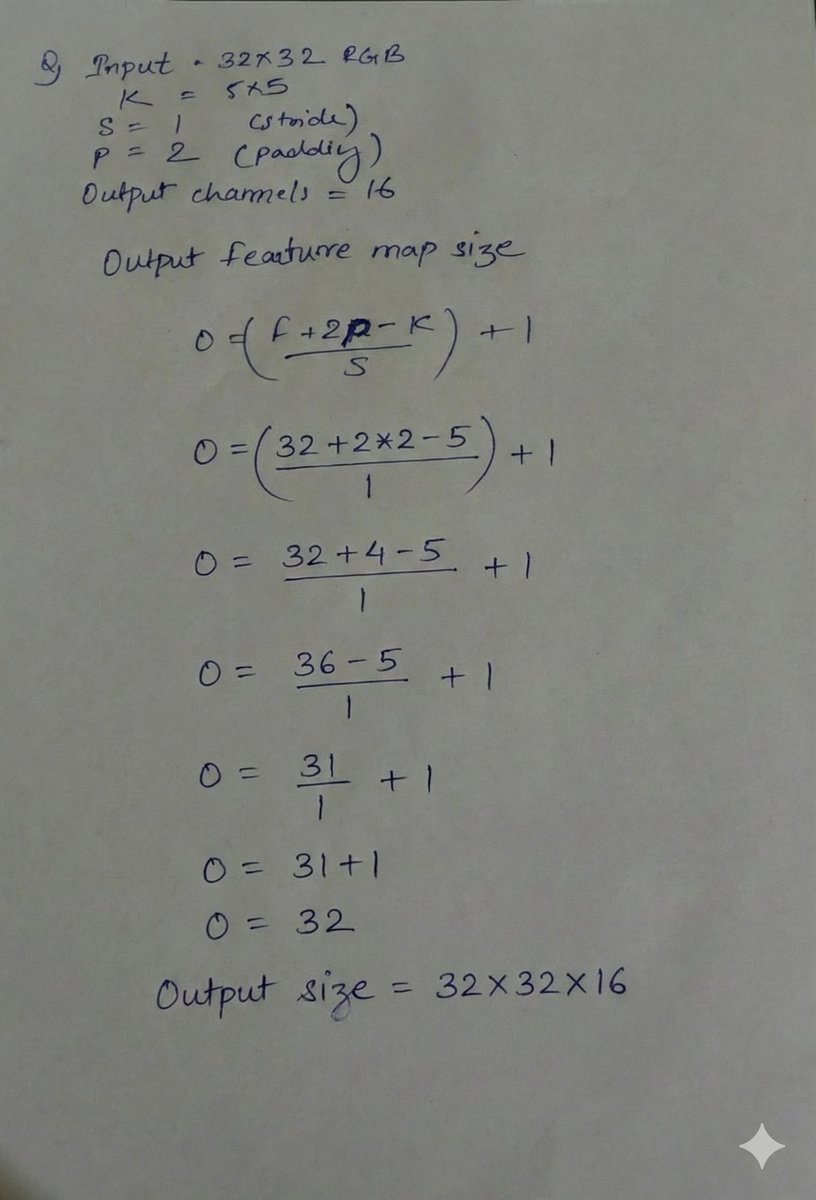 Q) Input . 32×32 RGB
K = 5×5
S = 1 (stride)
P = 2 (padding)
Output channels = 16
Output feature map size
O = (f + 2p - K / S) + 1
O = (32 + 2*2 - 5 / 1) + 1
O = 32 + 4 - 5 / 1 + 1
O = 36 - 5 / 1 + 1
O = 31 / 1 + 1
O = 31 + 1
O = 32
Output size = 32×32×16